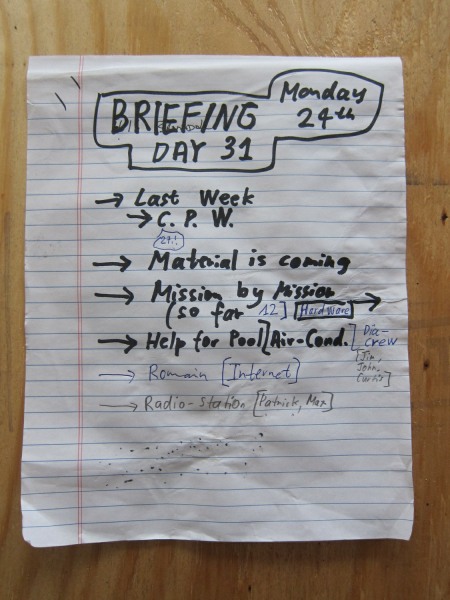 BRIEFING
DAY 31
Monday
24th
→ Last Week
→ C. P. W.
→ Material is coming
→ Mission by Mission →
(so far 12] [Hardware]
→ Help for Pool] Air-Cond. ] Dia-
crew
[Jim,
John,
Curtis]
→ Romain [Internet]
→ Radio-Station [Patrick, Max]